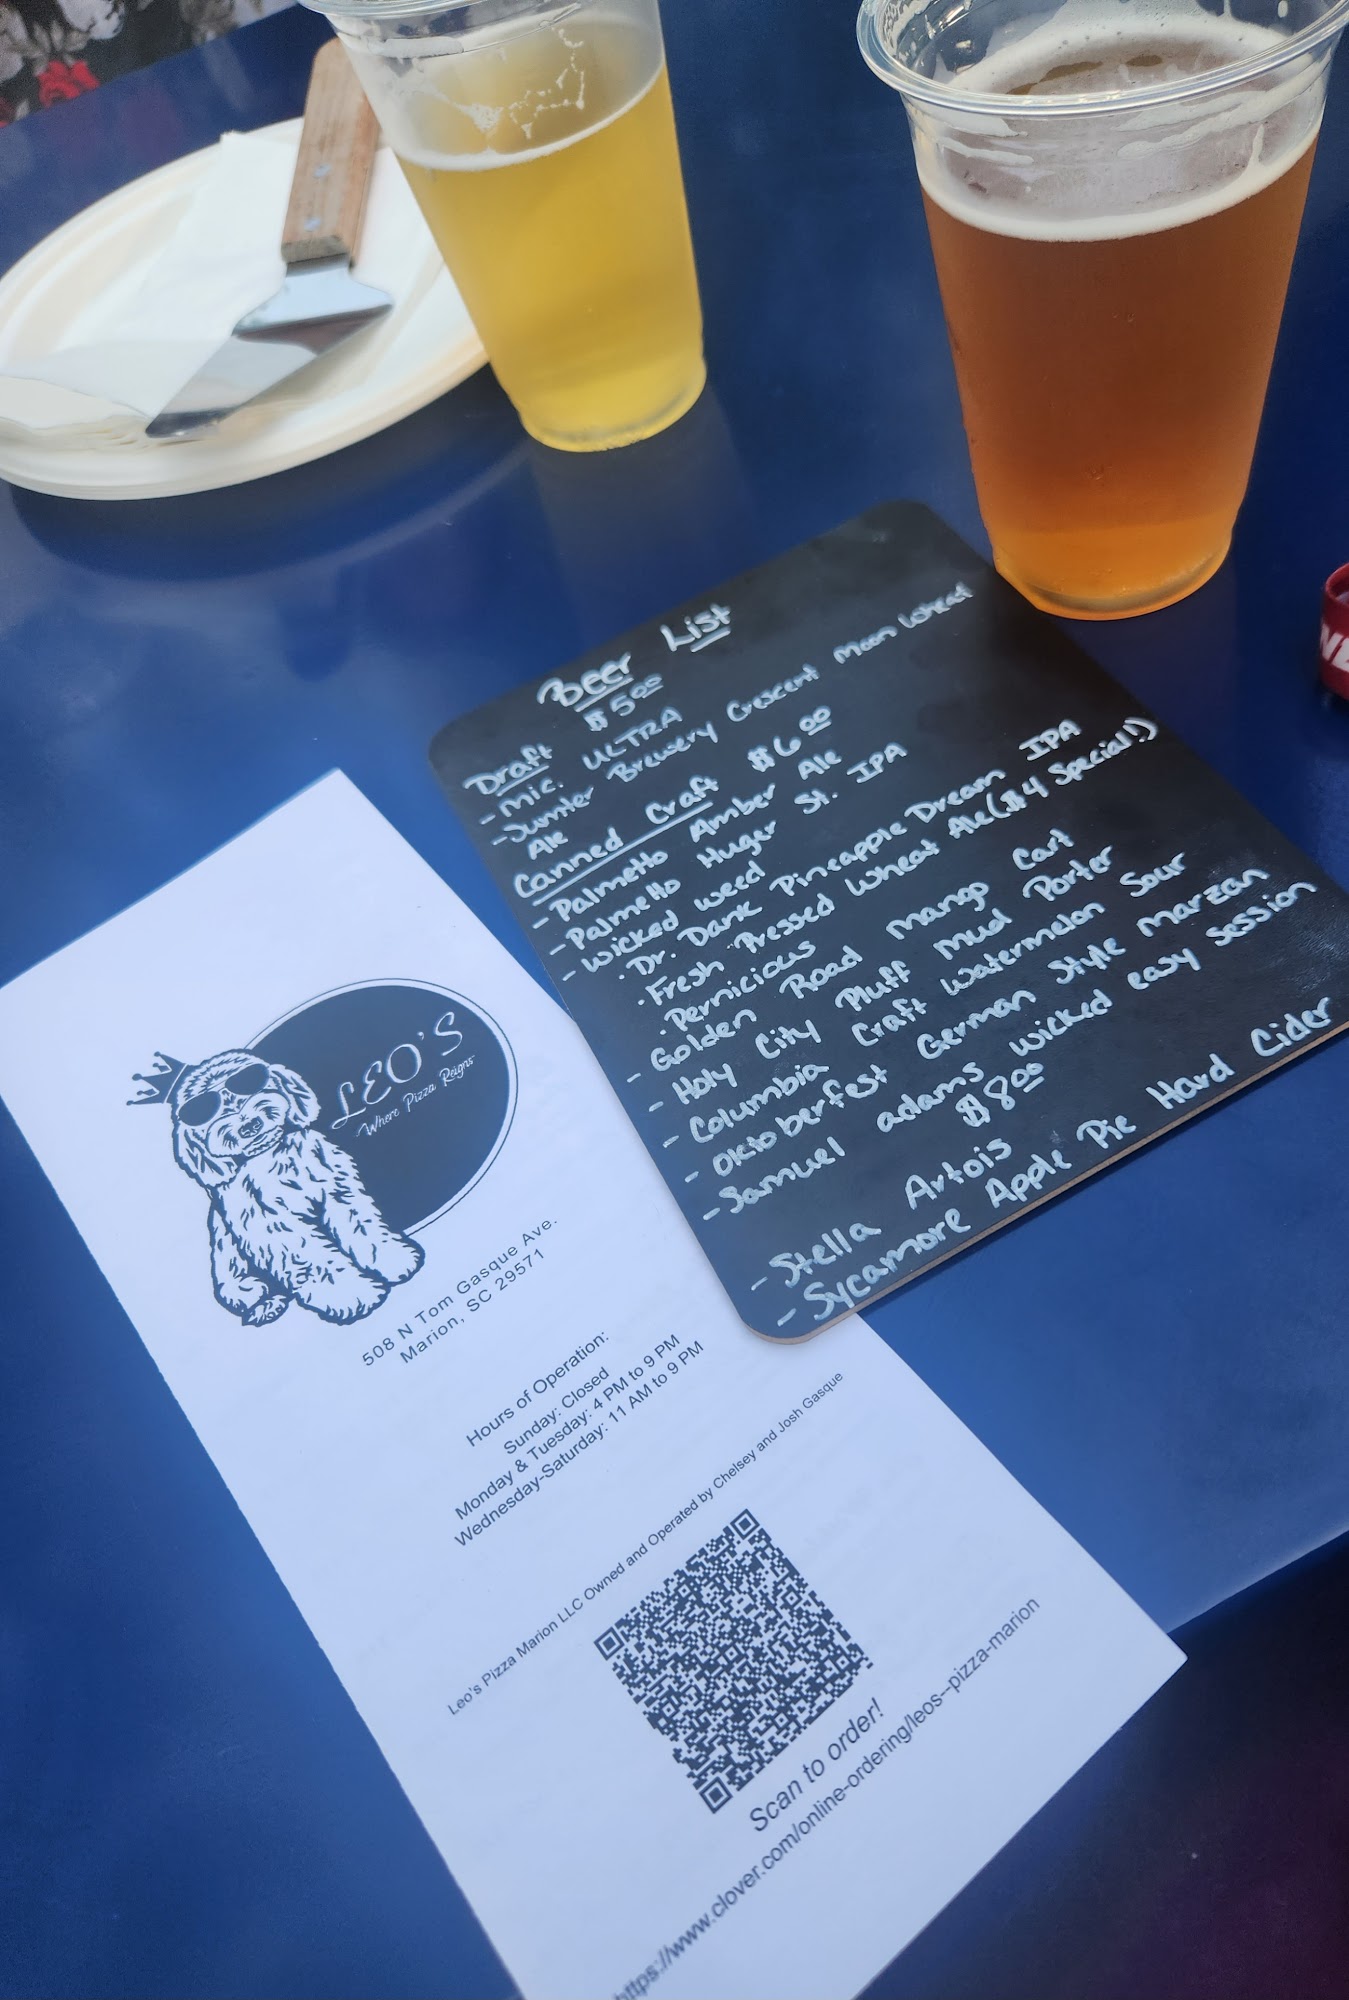 Beer List
Draft $5.00
- Mic. ULTRA
- Sumter Brewery Crescent Moon Wheat
Ale
Canned Craft $6.00
- Palmetto Amber Ale
- Palmetto Huger St. IPA
- Wicked Weed
· Dr. Dank Pineapple Dream IPA
· Fresh Pressed Wheat Ale ($4 Special!)
· Pernicious
- Golden Road Mango Cart
- Holy City Pluff Mud Porter
- Columbia Craft Watermelon Sour
- Oktoberfest German Style Marzan
- Samuel adams wicked easy session
$8.00
- Stella Artois
- Sycamore Apple Pie Hard Cider
LEO'S
Where Pizza Reigns
508 N Tom Gasque Ave.
Marion, SC 29571
Hours of Operation:
Sunday: Closed
Monday & Tuesday: 4 PM to 9 PM
Wednesday-Saturday: 11 AM to 9 PM
Leo's Pizza Marion LLC Owned and Operated by Chelsey and Josh Gasque
Scan to order!
https://www.clover.com/online-ordering/leos--pizza-marion